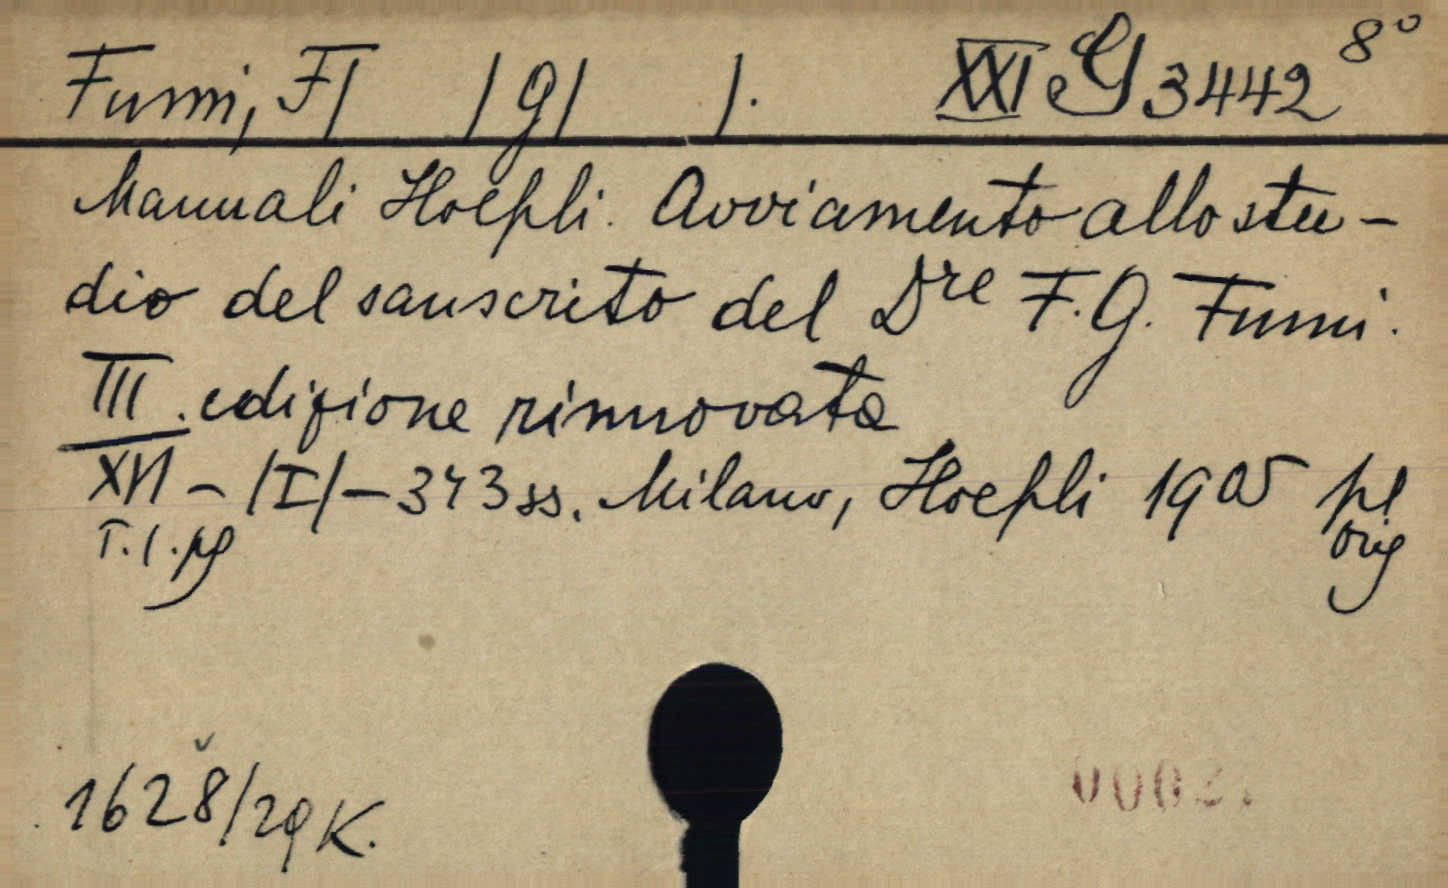 Fumi, F| |G| |. XXI G 3442 8°
Manuali Hoepli. Avviamento allo stu-
dio del sanscrito del Dre F.G. Fumi.
III. edizione rinnovata
XVI - |I| - 343 ss. Milano, Hoepli 1905 pl
T.l.pg orig
1628/29 K.